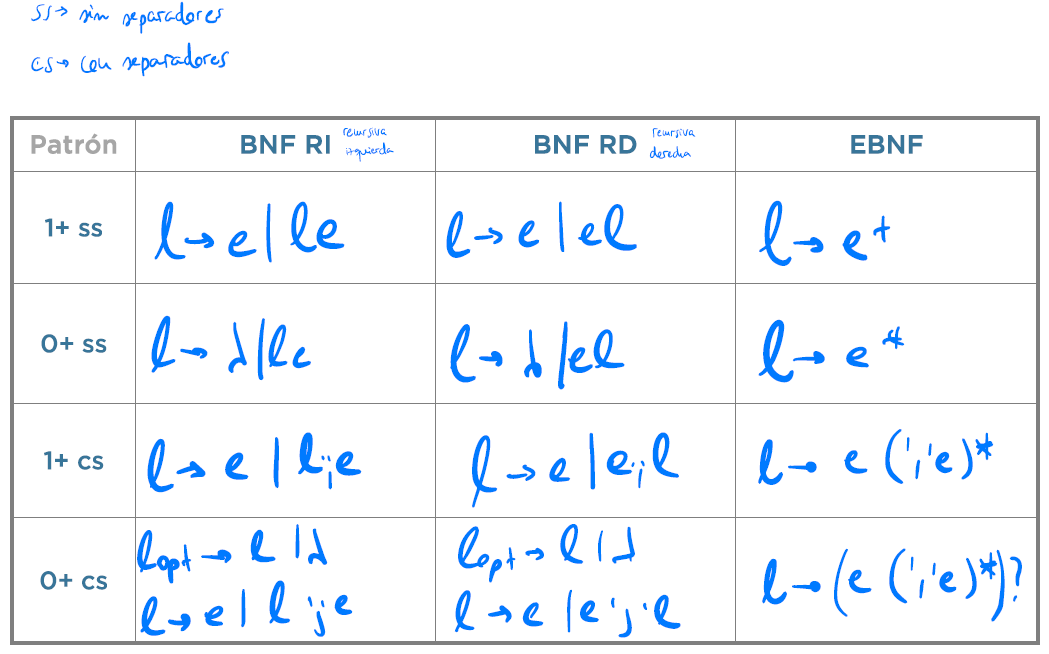 ss→ sin separadores
cs→ con separadores
Patrón BNF RI recursiva izquierda BNF RD recursiva derecha EBNF
1+ ss l → e | le l → e | el l → e+
0+ ss l → λ | le l → λ | el l → e*
1+ cs l → e | l ; e l → e | e ; l l → e (',' e)*
0+ cs lopt → l | λ lopt → l | λ l → (e (',' e)*)?
l → e | l ';' e l → e | e ';' l